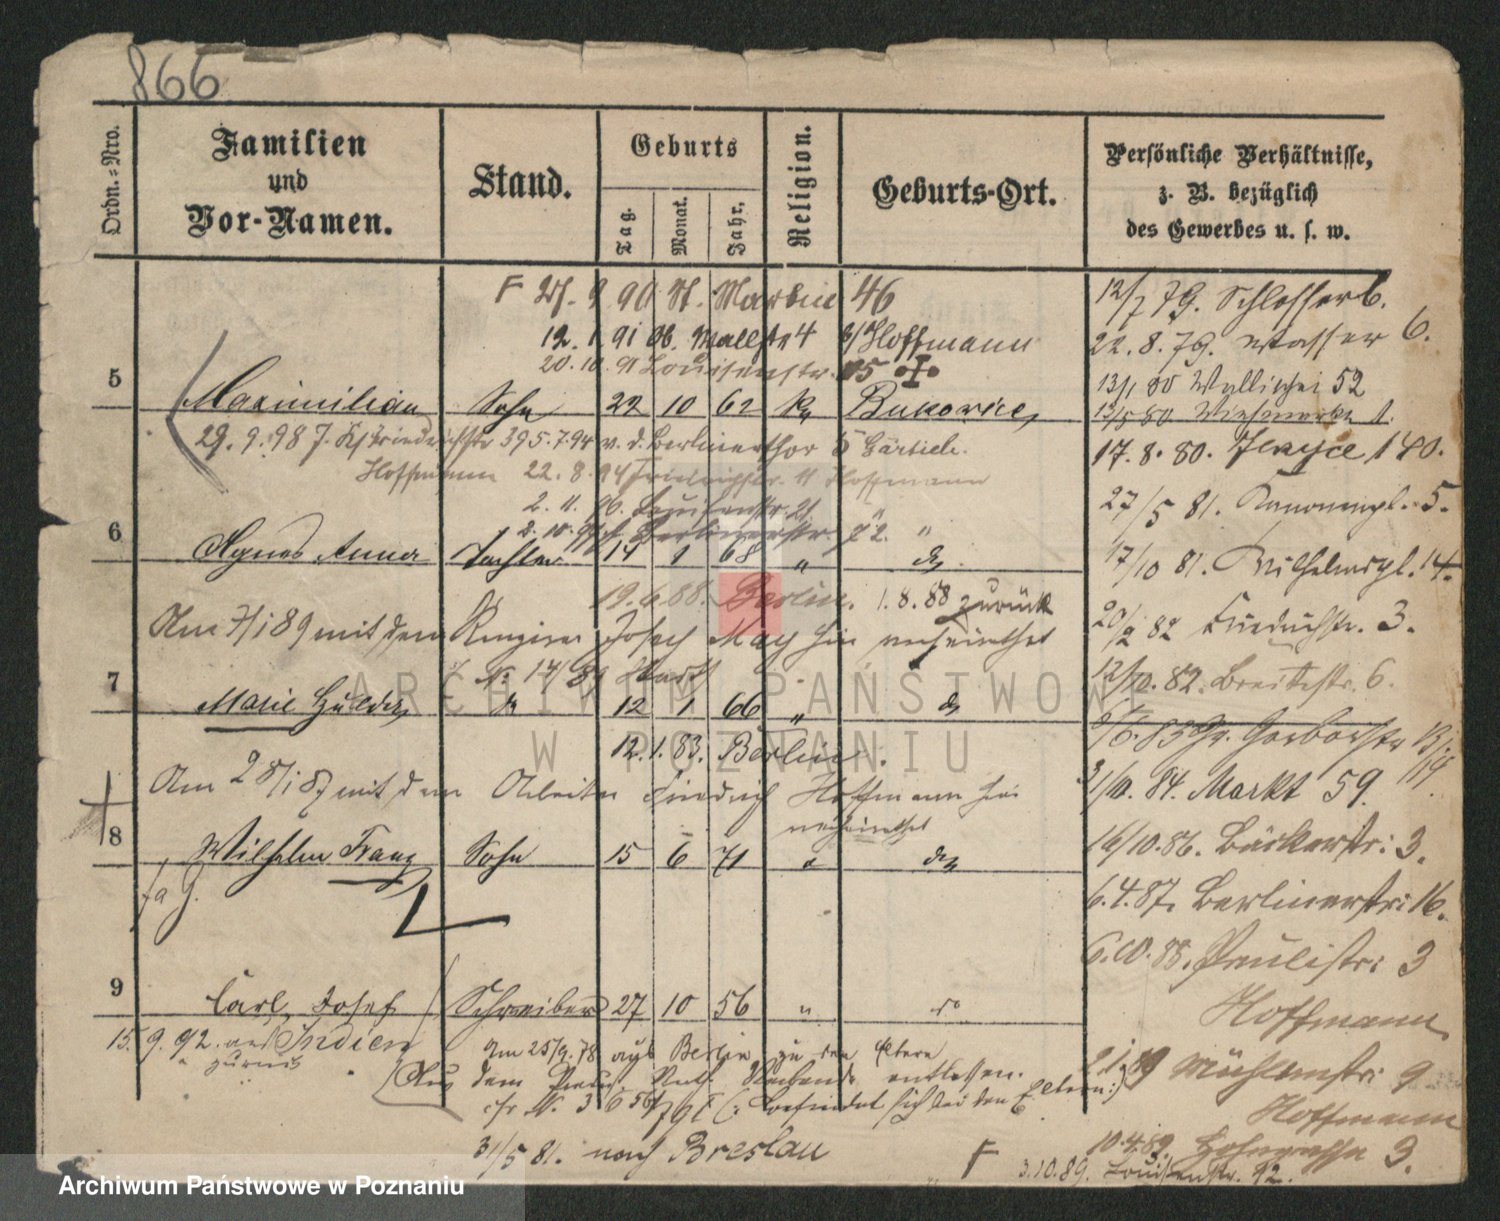 866
Ordn.-Nro.
Familien
und
Vor-Namen.
Stand.
Geburts
Tag.
Monat.
Jahr.
Religion.
Geburts-Ort.
Persönliche Verhältnisse,
z. B. bezüglich
des Gewerbes u. s. w.
F 27. 9 90 St. Martin 46
12. 1. 91 Ob. Wallstr 4 b/Hoffmann
20. 10. 91 Louisenstr. 15
5 Maximilian Sohn 22 10 62 k. Bukowiec
29. 9. 98 Friedrichstr 39 5.7.94 v. d. Berlinerthor 5 Gärtich.
Hoffmann 22. 8. 94 Friedrichstr. 11 Hoffmann
2. 11. 96. Louisenstr.
2. 10. Berlinerstr. "
6 Agnes Anna Tochter 14 1 68 " do
19. 6. 88. Berlin. 1. 8. 88 zurück
Am 7/1 89 mit dem Josef May hier verheirathet
No. 14/89
7 Marie Hulda do 12 1 66 " do
12. 1. 83. Berlin.
Am 28/1 87 mit dem Arbeiter Friedrich Hoffmann hier
verheirathet
8 Wilhelm Franz Sohn 15 6 71 " do
9 Carl Josef Schreiber 27 10 56 " do
15. 9. 92. aus Indien
zurück
Am 25/9. 78 aus Berlin zu den Eltern
Aus dem Preuß. Unth. Verbande entlassen.
(: befindet sich bei den Eltern :)
31/5 81. nach Breslau
12/7 79. Schlosserb.
22. 8. 79. Wasser 6.
13/1 80 Wallischei 52
13/5 80 Viehmarkt 1.
17. 8. 80. Jerzyce 140.
27/5 81. Kanonenpl. 5.
17/10 81. Wilhelmspl. 14.
20/2 82 Friedrichstr. 3.
12/10. 82. Breitestr. 6.
6/6. 83 Gr. Gerberstr
31/10. 84. Markt 59.
16/10. 86. Bäckerstr: 3.
6. 4. 87. Berlinerstr: 16.
6. 10. 88. Paulistr: 3
Hoffmann
2 1. 89 Mühlenstr: 9
Hoffmann
10. 4. 89. 3.
F 3. 10. 89. Louisenstr. 12.
ARCHIWUM PAŃSTWOWE
W POZNANIU
Archiwum Państwowe w Poznaniu